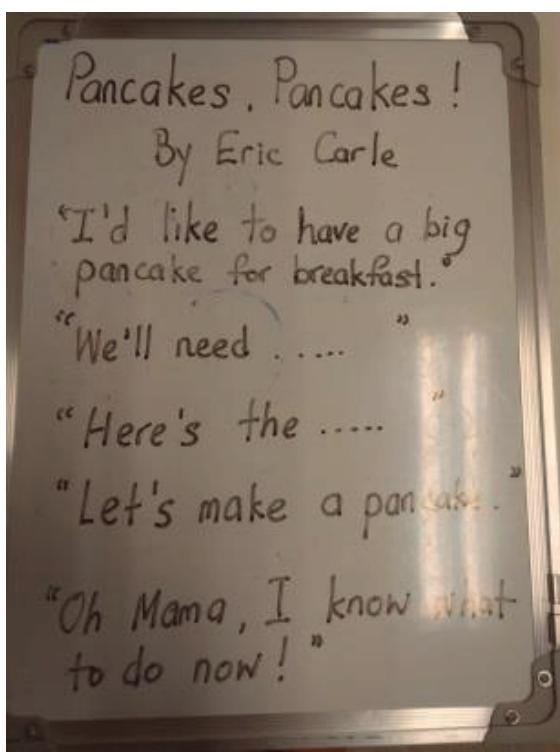 Pancakes, Pancakes!
By Eric Carle
"I'd like to have a big
pancake for breakfast."
"We'll need ..... "
"Here's the ..... "
"Let's make a pancake."
"Oh Mama, I know what
to do now!"